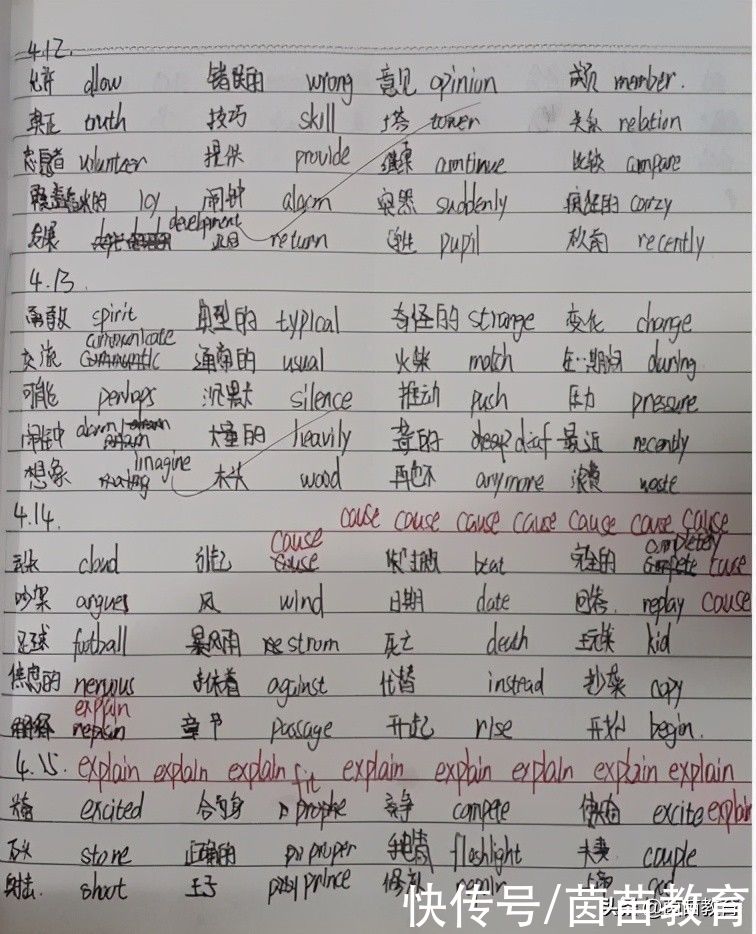 4.12.
允许 allow 错误的 wrong 意见 opinion 成员 member.
真正 truth 技巧 skill 塔 tower 关系 relation
志愿者 volunteer 提供 provide 继续 continue 比较 compare
覆盖着冰的 icy 闹钟 alarm 突然 suddenly 疯狂的 corzy
发展 development 返回 return 学生 pupil 秋前 recently
4.13.
spirit 典型的 typical 奇怪的 strange 变化 change
communicate
交流 通常的 usual 火柴 match 在…期间 during
可能 perhaps 沉默 silence 推动 push 压力 pressure
闹钟 alarm 大量的 heavily 聋的 deaf 最近 recently
imagine
想象 木头 wood 再也不 anymore 浪费 waste
4.14. cause cause cause cause cause cause cause
cause completely
云朵 cloud 引起 cause beat 完全的 cause
吵架 argues 风 wind 日期 date 回答. replay cause
足球 football 暴风雨 strom 死亡 death 玩笑 kid
焦虑的 nervous against 代替 instead 抄袭 copy
explain
解释 章节 passage 升起 rise 开始 begin.
4.15. explain explain explain fit explain explain explain explain explain
excited 合身 prophe 竞争 compete excite explain
石头 stone 正确的 proper 手电筒 flashlight 夫妻 couple
射击. shoot 王子 prince
快传号/茵苗教育
头条@茵苗教育